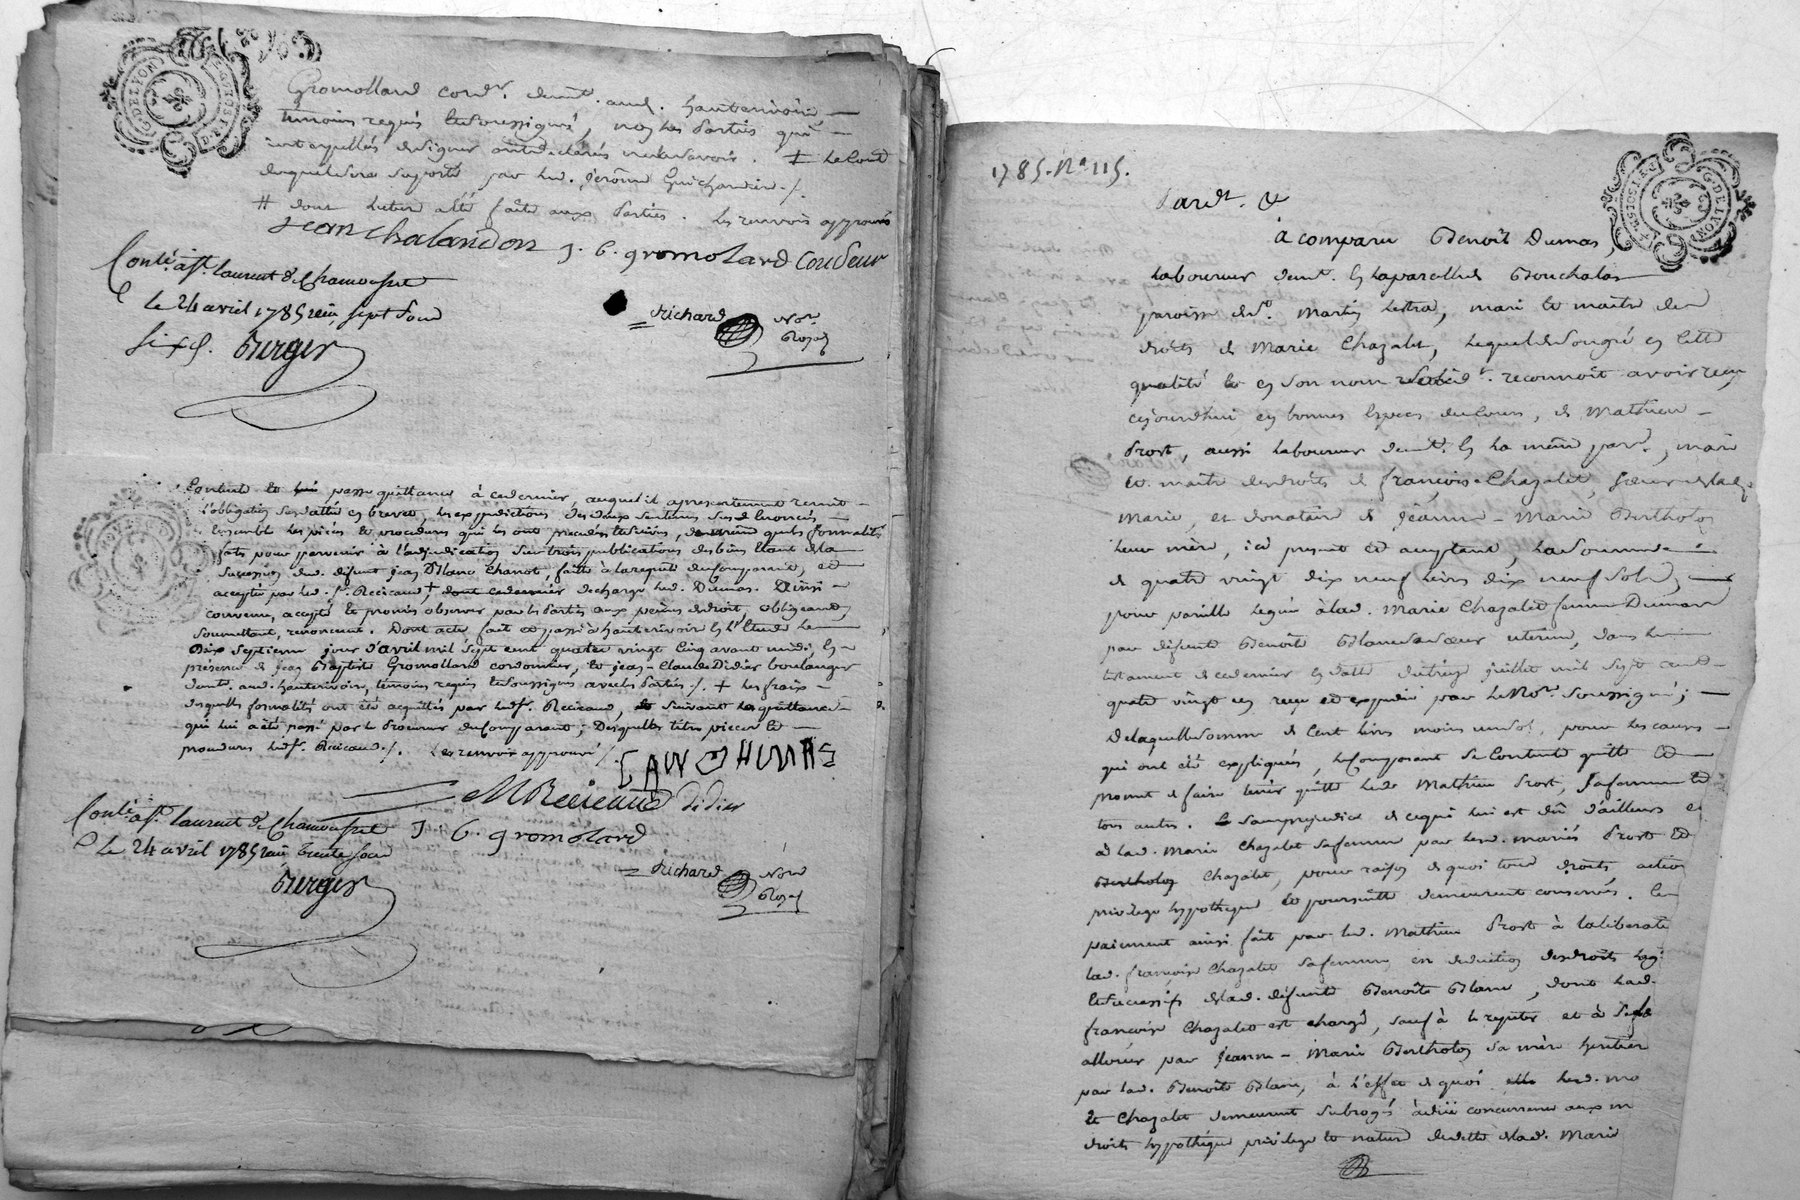 G. DE LYON
Gromolland cord.r demt. aud. hauterivoire,
temoins requis et soussignés, non les parties qui
interpellés de signer ont déclarés ne le savoir. ‡ le cout
duquel sera suporté par led. Jerôme Guichardin ./.
# dont lecture a été faite aux parties. les renvois approuvés
Jean chalandon J. B. gromolard Cordeur
Conlé. à St. laurent de Chamousset
le 24 avril 1785 reçu sept sous
six d. Berger
Richard Nore
Royal
Contente et passe quittance à ce dernier, auquel il a presentement remit
l'obligation susdattée en brevet, les expeditions des deux sentences sus énoncées,
ensemble les pièces et procedures qui les ont precedées et suivies, de même que les formalités
faits pour parvenir à l'adjudication sur trois publications des biens étant de la
succession du d. défunt jean Blanc Chanot, faitte à la requête du comparant, et
acceptée par led. Sr. Recicaud, + dont ce dernier decharge led. Dumas. Ainsi
convenu, accepté et promis observer par les parties aux peines de droit, obligeants,
soumettant, renonceant. Dont acte fait et passé à hauterivoire en l'Etude le
Dix septieme jour d'avril mil sept cent quatre vingt cinq avant midi, en
présence de jean Baptiste Gromolland cordonnier, et jean-Claude Didier boulanger
demt. aud. hauterivoire, témoins requis et soussignés avec les parties ./. + les fraix
desquelles formalités ont été acquittés par led. Sr. Recicaud, suivant la quittance
qui lui a été passé par le Procureur du comparant; Desquelles titres pieces et
procedures led. Sr. Recicaud ./. Les renvois approuvés ./.
M Recicaud didier
J. B. gromolard
Conlé. à St. laurent de Chamousset
le 24 avril 1785 reçu trente sous
Berger
Richard Nore
Royal
1785. No. 115.
G. DE LYON
Pardt. &
à comparu Benoit Dumas,
laboureur demt. en la parcelle de Bouchalas
paroisse de St. Martin lestra, mari et maitre des
droits de Marie Chazalet, lequel de son gré en cette
qualité et en son nom reconnoit avoir reçu
cejourdhui en bonnes especes du cours, de Mathieu
Prost, aussi laboureur demt. en la même parr., mari
et maitre des droits de françoise Chazalet, soeur de lad.
Marie, et donataire de Jeanne-Marie Bertholon
leur mère, ici présent et acceptant, la somme
de quatre vingt dix neuf livres dix neuf sols,
pour pareille leguée à lad. Marie Chazalet femme Dumas
par défunte Benoite Blanc sa soeur uterine, dans le
testament de ce dernier en datte du treize juillet mil sept cent
quatre vingt un reçu et expedié par le Nore. soussigné;
De laquelle somme de cent livres moins un sol, pour les causes
qui ont été expliquées, le comparant se contente quitte et
promet de faire tenir quitte led. Mathieu Prost, sa femme et
tous autres. Sans prejudice de ce qui lui est dû d'ailleurs et
à lad. Marie Chazalet sa femme par lesd. mariés Prost et
Chazalet, pour raison de quoi tous droits, action
privilege hypotheque et poursuitte demeurent conservés. Le
paiement ainsi fait par led. Mathieu Prost à la liberate
lad. françoise Chazalet sa femme, en deduction des droits leg.
et successifs de lad. défunte Benoite Blanc, dont lad.
françoise Chazalet est chargée, sauf à le repeter et à se
allouer par Jeanne-Marie Bertholon sa mère heritiere
par lad. Benoite Blanc, à l'effet de quoi lesd. ma
et Chazalet demeurent subrogés à due concurrence aux m
droits hypothéque privilege et nature de dette de lad. Marie